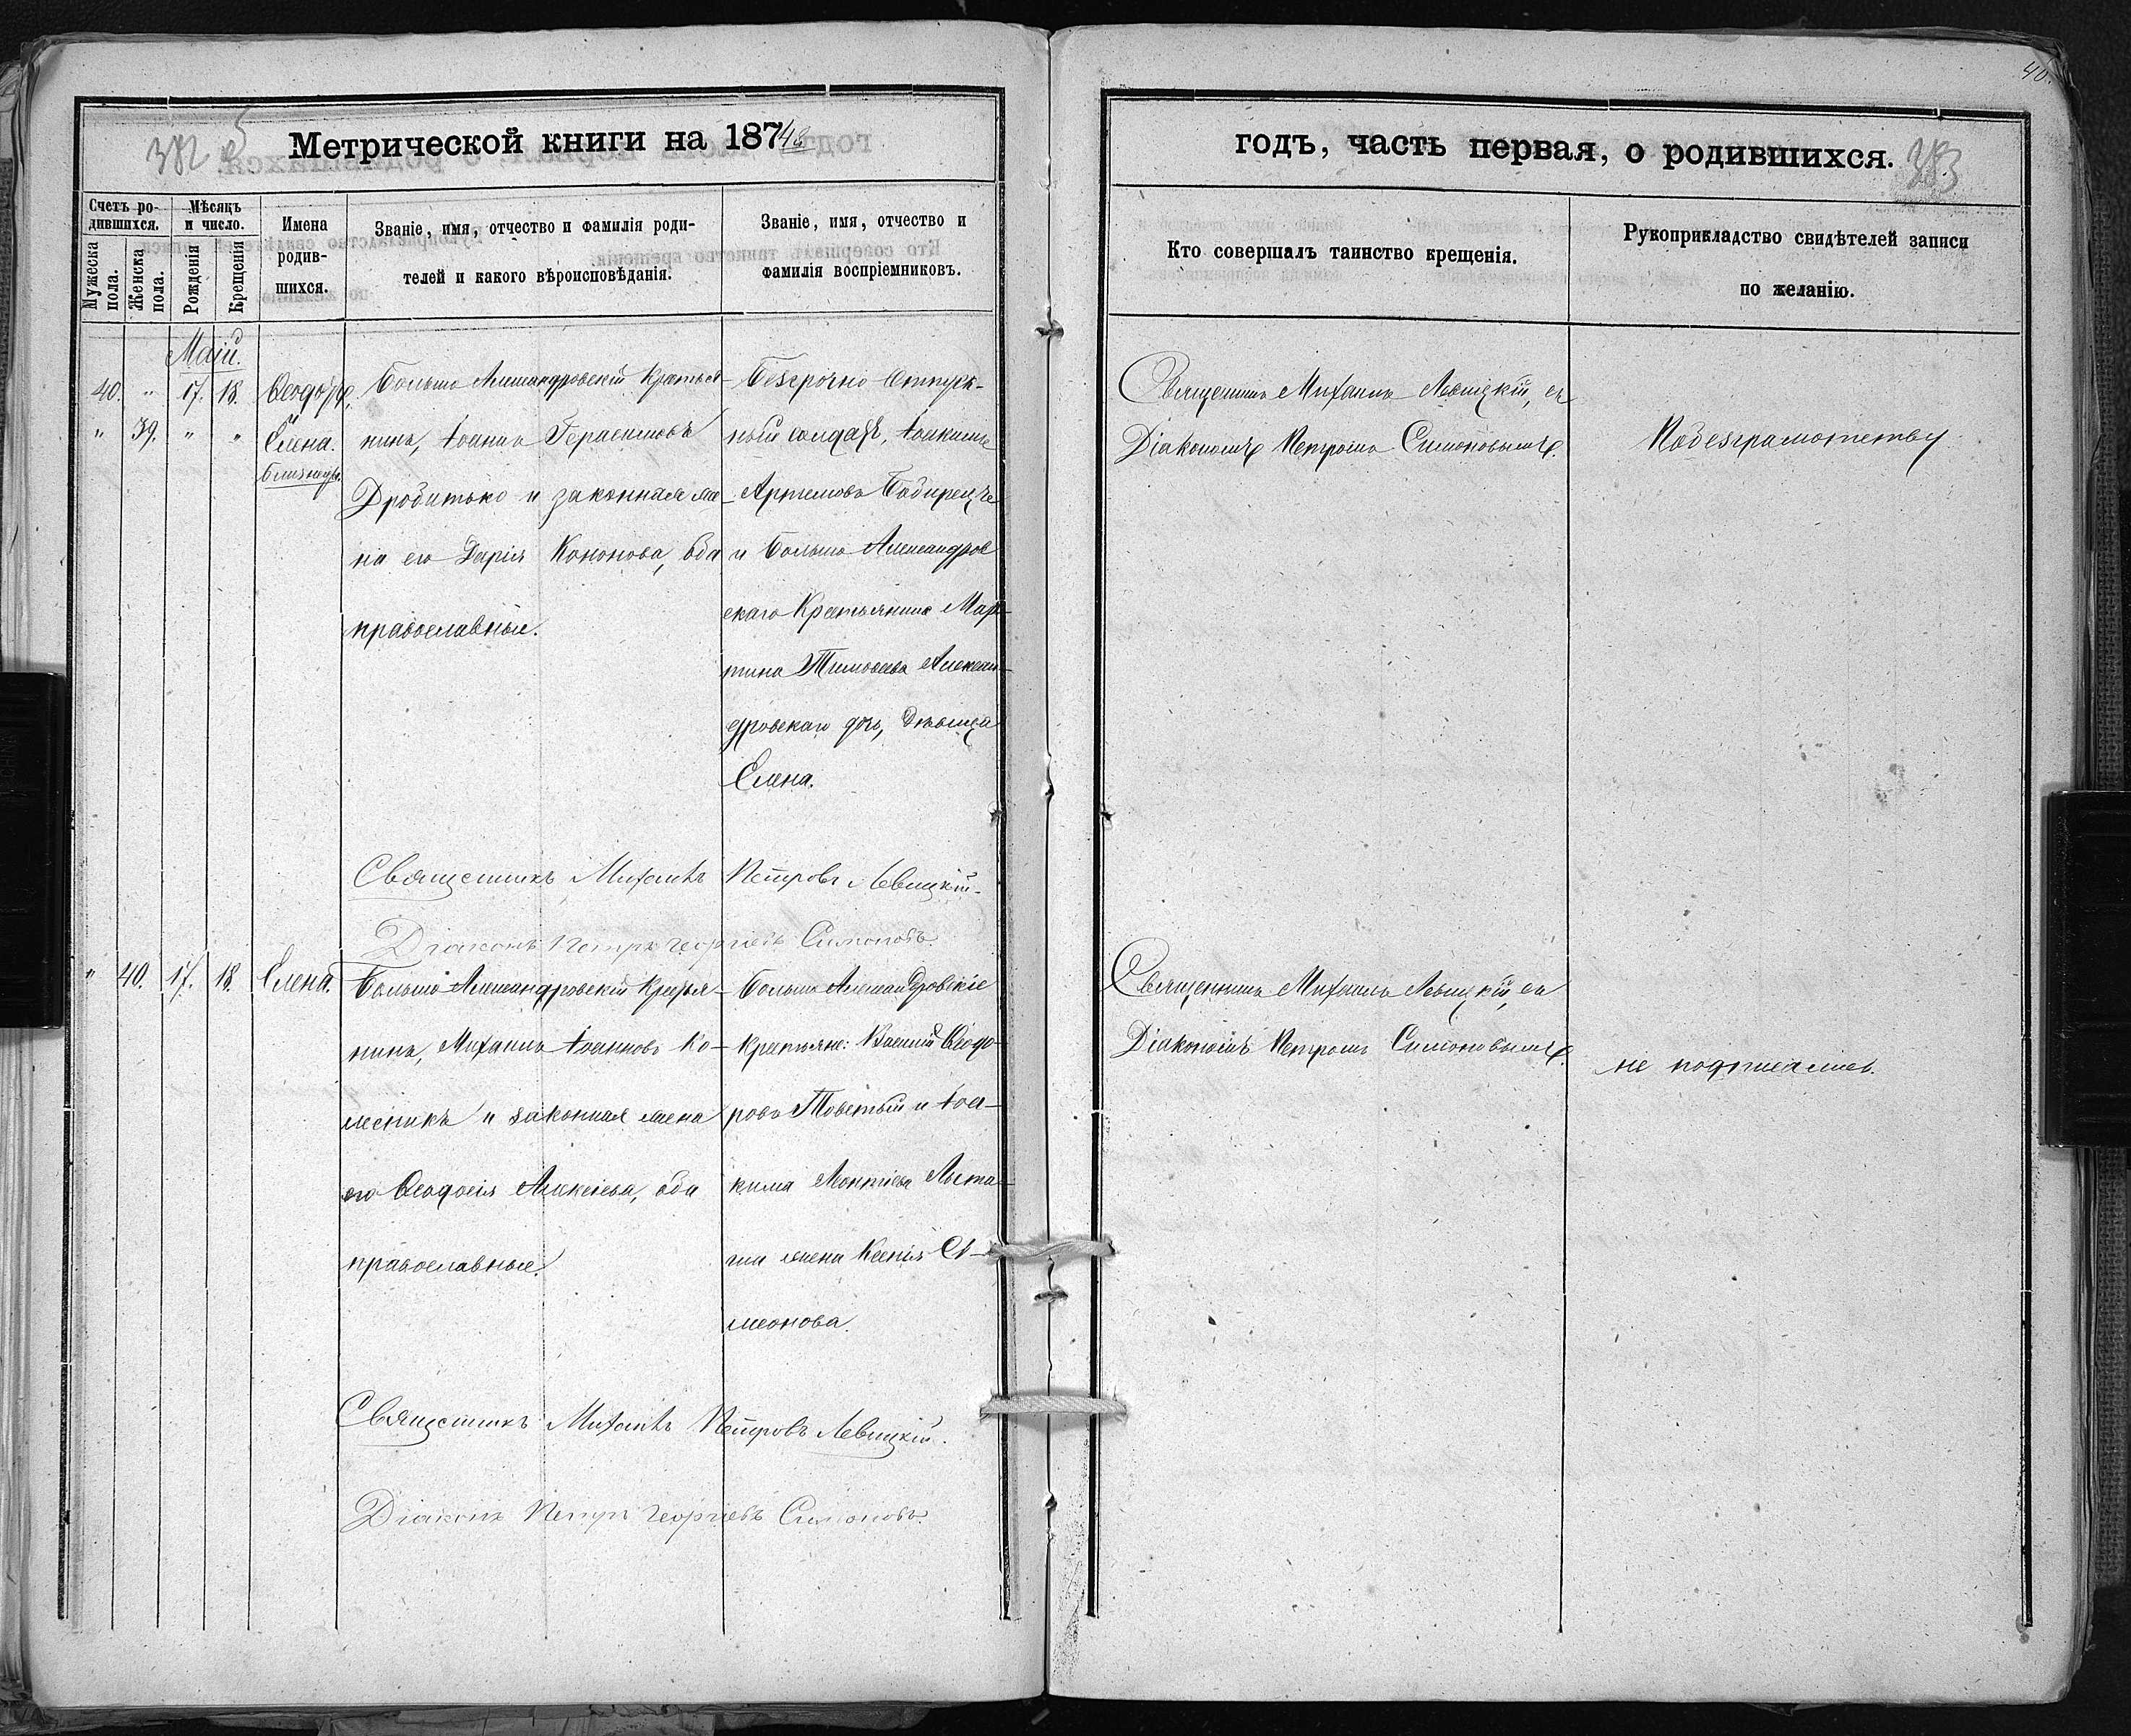 40.
382 об
Метрической книги на 1874 годъ, часть первая, о родившихся.
383
Счетъ родившихся. Мѣсяцъ и число. Имена родившихся. Званіе, имя, отчество и фамилія родителей и какого вѣроисповѣданія. Званіе, имя, отчество и фамилія воспріемниковъ.
Мужеска пола. Женска пола. Рожденія Крещенія
Кто совершалъ таинство крещенія. Рукоприкладство свидѣтелей записи по желанію.
Маій.
40. " 17. 18. Ѳеодоръ
и
" 39. " " Елена.
близнецы.
Больше Александровскій Крестья-
нинъ, Іоаннъ Герасимовъ
Дробитько и законная же-
на его Дарія Кононова, оба
православные.
Безсрочно Отпуск-
ный солдатъ, Іоакимъ
Артемовъ
и Больше Александров
скаго Крестьянина Мар-
тина Тимоѳеева Алексан-
дровскаго дочь, Дѣвица
Елена.
Священникъ Михаилъ Левицкій, съ
Діакономъ Петромъ Симоновымъ.
По безграмотству
Священникъ Михаилъ Петровъ Левицкій.
Діаконъ Петръ Георгіевъ Симоновъ.
" 40. 17. 18. Елена.
Больше Александровскій Крестья-
нинъ, Михаилъ Іоанновъ Ко-
лесникъ и законная жена
его Ѳеодосія Алексіева, оба
православные.
Больше Александровскіе
крестьяне: Василій Ѳеодо-
ровъ Товстый и Іоа-
кима Леонтіева
жена Ксенія Си-
меонова.
Священникъ Михаилъ Левицкій, съ
Діакономъ Петромъ Симоновымъ.
не подписались.
Священникъ Михаилъ Петровъ Левицкій.
Діаконъ Петръ Георгіевъ Симоновъ.